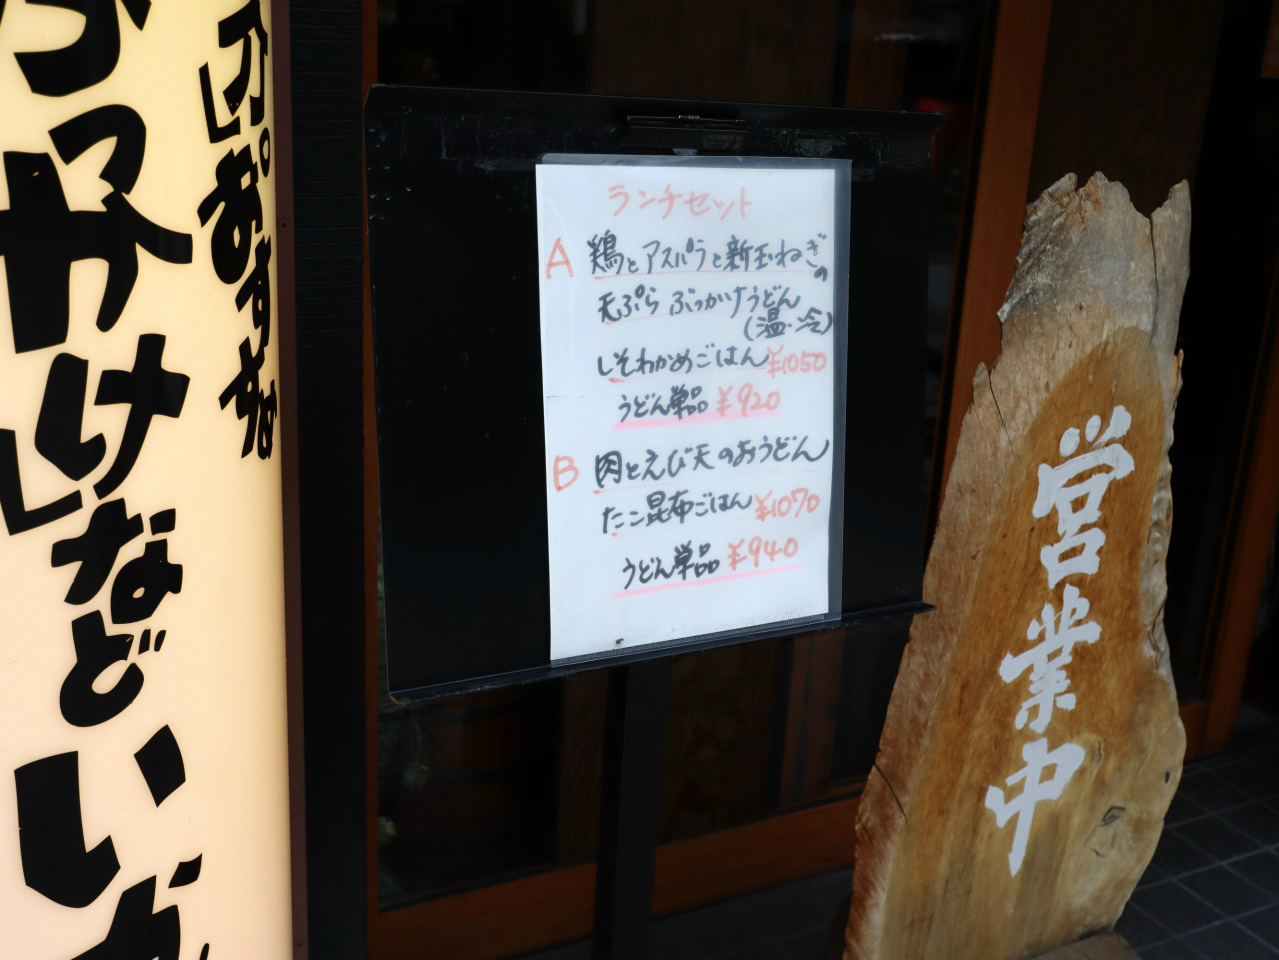 ランチセット
A 鶏とアスパラと新玉ねぎの
天ぷら ぶっかけうどん
(温・冷)
しそわかめごはん ¥1050
うどん単品 ¥920
B 肉とえび天のおうどん
たこ昆布ごはん ¥1070
うどん単品 ¥940
営業中
おすすな
ぶっかけなどいか